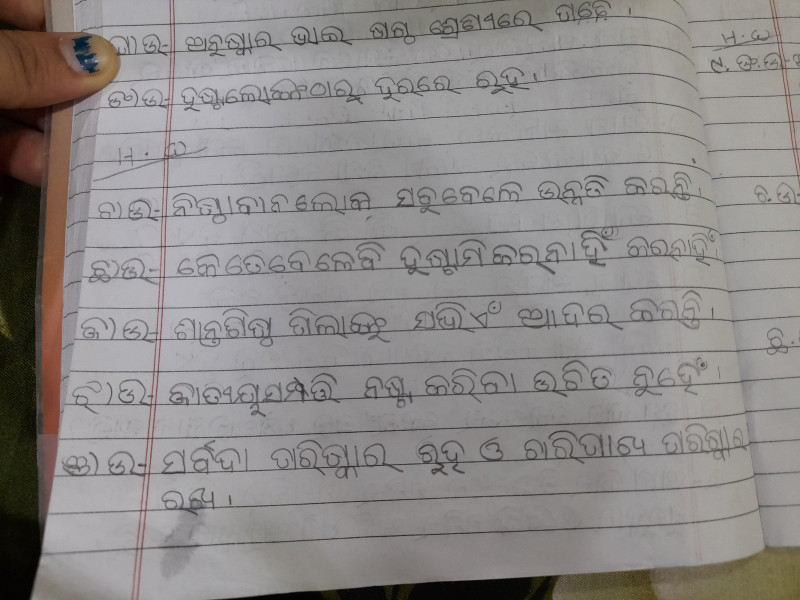 ଘ) ଉ- ଅନୁଷ୍କାର ଭାଇ ଷଷ୍ଠ ଶ୍ରେଣୀରେ ପଢ଼େ ।
ଙ) ଉ- ଦୁଷ୍ଟଲୋକଙ୍କଠାରୁ ଦୂରରେ ରୁହ ।
H.W
ଚ) ଉ- ନିଷ୍ଠାବାନ ଲୋକ ସବୁବେଳେ ଉନ୍ନତି କରନ୍ତି ।
ଛ) ଉ- କେତେବେଳେବି ଦୁଷ୍ଟାମି କରନାହିଁ କରନାହିଁ
ଜ) ଉ- ଶାନ୍ତଶିଷ୍ଟ ପିଲାଙ୍କୁ ସଭିଏଁ ଆଦର କରନ୍ତି ।
ଝ) ଉ- ଜାତୀୟସମ୍ପତ୍ତି ନଷ୍ଟ କରିବା ଉଚିତ ନୁହେଁ ।
ଞ) ଉ- ସର୍ବଦା ପରିଷ୍କାର ରୁହ ଓ ଚାରିପାଖ ପରିଷ୍କାର
ରଖ ।
H.W